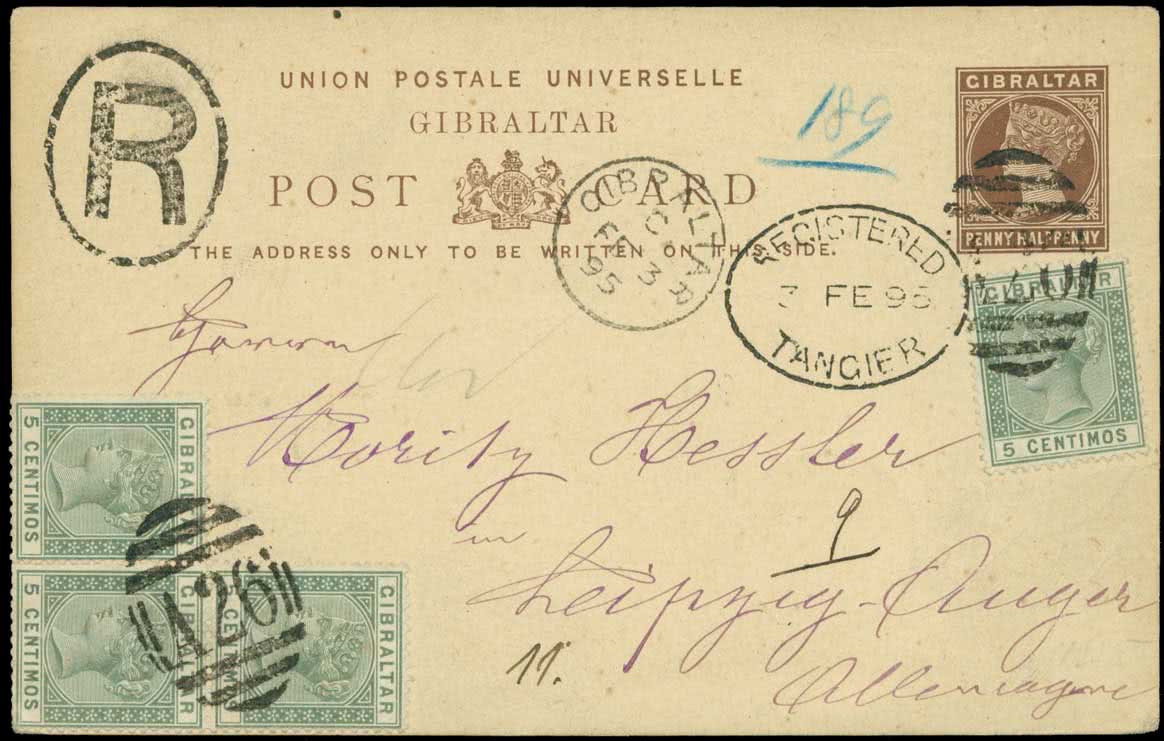 UNION POSTALE UNIVERSELLE
GIBRALTAR
POST CARD
THE ADDRESS ONLY TO BE WRITTEN ON THIS SIDE.
R
189
GIBRALTAR
PENNY HALFPENNY
GIBRALTAR
C
FE 3
95
REGISTERED
3 FE 95
TANGIER
GIBRALTAR
5 CENTIMOS
Herrn
Moritz Hessler
in
Leipzig-Anger
Allemagne
9
11.
GIBRALTAR
5 CENTIMOS
GIBRALTAR
5 CENTIMOS
GIBRALTAR
5 CENTIMOS
A26